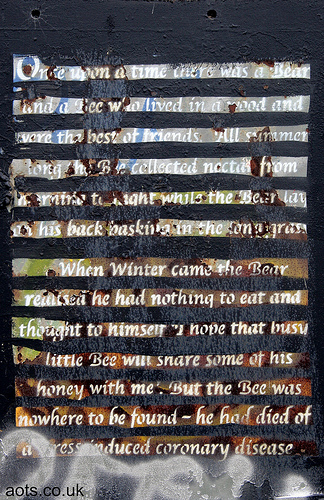 Once upon a time there was a Bear
and a Bee who lived in a wood and
were the best of friends. All summer
long the Bee collected nectar from
morning to night while the Bear lay
on his back basking in the long grass
When Winter came the Bear
realised he had nothing to eat and
thought to himself I hope that busy
little Bee will share some of his
honey with me. But the Bee was
nowhere to be found - he had died of
a stress induced coronary disease.
aots.co.uk